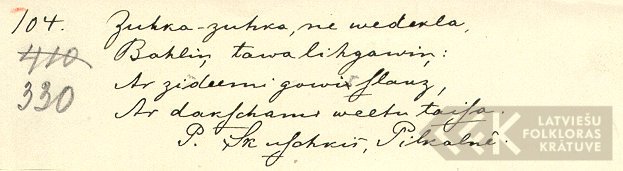 104. Zuhka-zuhka, ne wedekla,
410 Bahliņ, tawa lihgawiņ:
330 Ar zideemi gowis slauz,
Ar dakschami weetu taisa.
P. Skuschkis, Pilkalnê.
LATVIEŠU
FOLKLORAS
KRĀTUVE